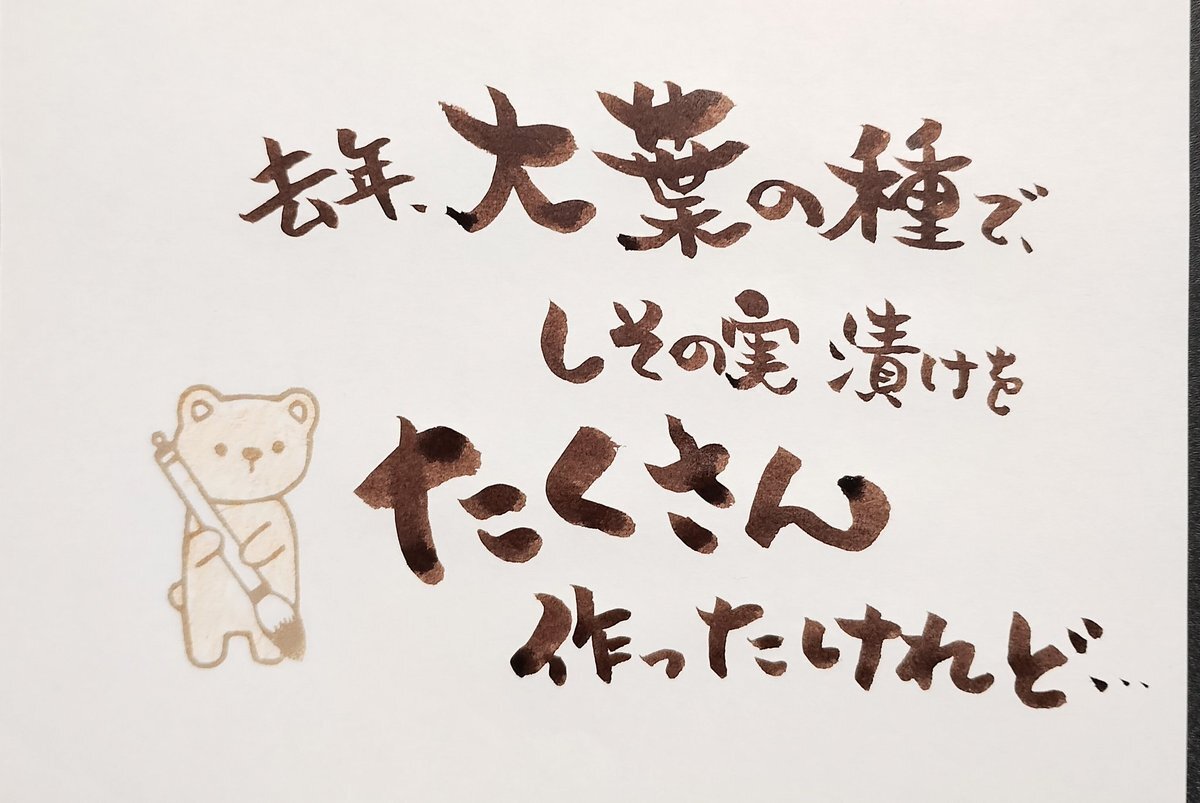 去年、大葉の種で、
しその実漬けを
たくさん
作ったけれど…